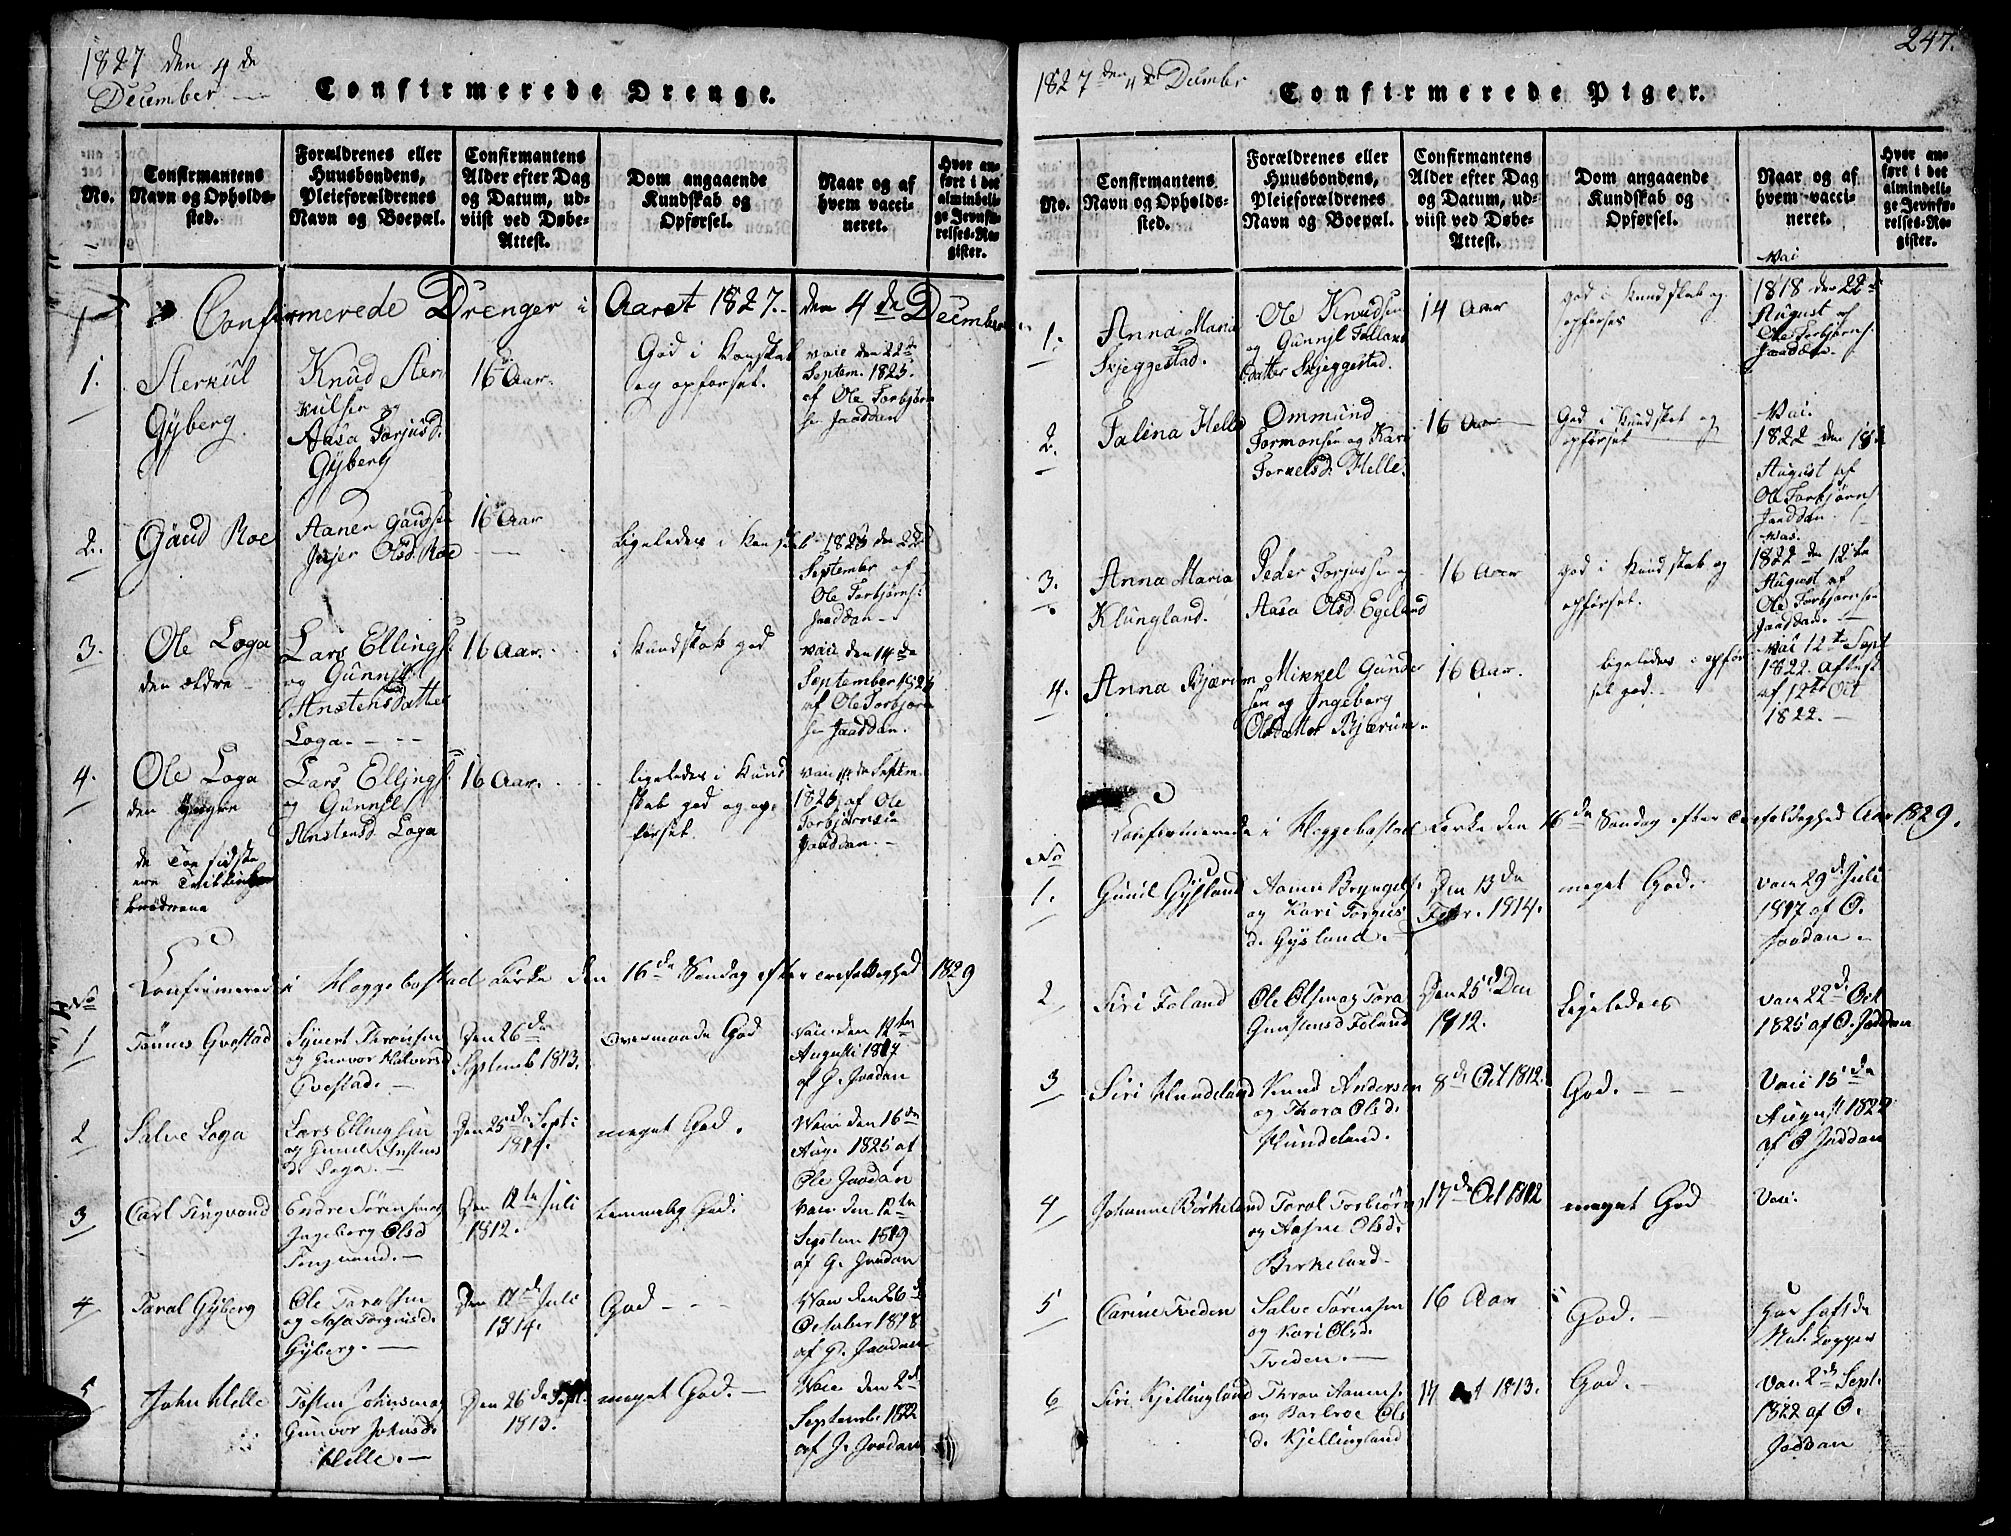 1827 den 4de
December
Confirmerede Drenge.
No.
Confirmantens
Navn og Opholds-
sted.
Forældrenes eller
Huusbondens,
Pleieforældrenes
Navn og Boepæl.
Confirmantens
Alder efter Dag
og Datum, ud-
viist ved Døbe-
Attest.
Dom angaaende
Kundskab og
Opførsel.
Naar og af
hvem vacci-
neret.
Hvor an-
ført i det
almindeli-
ge Jevnfø-
relses-Re-
gister.
Confirmerede Drenger i Aaret 1827. den 4de December
1.
Sterkul
Gyberg
Knud Ster
kulsen og
Aasa Torjusd.
Gyberg
16 Aar.
God i Konskab
og opførsel.
vaic den 22de
Septem. 1825.
af Ole Torbjørn
sen Jaaddan
2.
Gaud Roe
Aanen Gaudsen
Olsd. Roe
16 Aar
Ligeledes i konskab
1825 den 22de
September af
Ole Torbjørns.
Jaaddan
3.
Ole Loga
den ældre
Lars Ellings.
og Gunnil
Anstensdatter
Loga.
16 Aar.
i Kundskab god
vaic den 14de
September 1825
af Ole Torbjørn
sen Jaaddan.
4.
Ole Loga
den yngre
de Toe sidste
ere Tvilling
brødrene
Lars Ellings.
og Gunnil
Anstensd. Loga
16 Aar.
ligeledes i Kund
skab god og op-
førsel.
vaic 14de Septem.
1825 af Ole
Torbjørnsen
Jaaddan.
Confirmerede i Heggebostad Kirke den 16de Søndag efter Trefoldeghed 1829
No
1
Tønnes Gvestad
Syvert Torensen
og Gunvor Halvorsd
Evestad.
Den 26de
Septemb 1813.
Overmaade God
Vaic den 12ten
Augusti 1817
af O. Jaadan
2
Salve Loga
Lars Ellingsen
og Gunil Anstens
d. Loga.
Den 25de Sept:
1814.
meget God.
Vaic den 16de
Aug. 1825 af
Ole Jaadan
3
Carl Tingvand
Endre Sørensen og
Ingeborg Olsd
Tingvand.
Den 12te Juli
1812.
temmelig God.
Vaic den 12te
Septem 1819
af O. Jaadan
4
Taral Gyberg
Ole Taralsen
og Aasa Torgiusd.
Gyberg.
Den 12de Juli
1814.
God
Vaic den 26d
October 1818
af O. Jaadan
5
John Helle
Tosten Johnsen og
Gunvor Johnsd.
Helle.
Den 26de Sept.
1813.
meget God.
Vaic den 2d
Septemb. 1822
af O. Jaadan
247.
1827 den 4de Decembr
Confirmerede Piger.
No.
Confirmantens
Navn og Opholds-
sted.
Forældrenes eller
Huusbondens,
Pleieforældrenes
Navn og Boepæl.
Confirmantens
Alder efter Dag
og Datum, ud-
viist ved Døbe-
Attest.
Dom angaaende
Kundskab og
Opførsel.
Naar og af
hvem vacci-
neret.
Hvor an-
ført i det
almindeli-
ge Jevnfø-
relses-Re-
gister.
1.
Anna Maria
Skjeggestad.
Ole Knudsen
og Gunnil Folland
datter Skjeggestad.
14 Aar
god i Kundskab og
opførsel
Vai
1818 den 22de
August af
Ole Torbjørns.
Jaaddan.
2.
Talina Helle
Ommund
Tormonsen og Kari
Torkelsd. Helle.
16 Aar
God i Kundskab og
opførsel
Vai.
1822 den 18de
August af
Ole Torbjørns.
Jaaddan.
3.
Anna Maria
Klungland.
Peder Torjussen og
Aasa Olsd. Egeland
16 Aar
god i Kundskab og
opførsel.
Vai.
1822 den 12te
August af
Ole Torbjørnsen
Jaaddan.
4.
Anna Bjærum
Mikkel Gunder
sen og Ingeborg
Olsdatter Bjærum.
16 Aar.
ligeledes i opfør
sel god.
Vai 12te Sept
1822. Attest
af 12te Oct
1822.
Confirmerede i Heggebostad Kirke den 16de Søndag efter Trefoldeghed Aar 1829.
No
1.
Gunil Gysland
Aanen Bryngels.
og Kari Torgius
d. Gysland.
Den 13de
Febr. 1814.
meget God.
Vaic 29d Juli
1817 af O.
Jaadan.
2
Siri Foland
Ole Olsen og Tora
Gunstensd Foland
Den 25d Dec
1812.
Ligeledes
Vaic 22de Oct
1825 af O. Jaddan
3
Siri Hundeland
Knud Andersen
og Thora Olsd.
Hundeland.
8de Oct 1812.
God.
Vaic 15de
August 1822
af O Jaddan
4
Johanne Birkeland
Tarol Torbiørns.
og Aasne Olsd.
Birkeland
17de Oct 1812
meget God
Vaic.
5
Carine Tveden
Salve Sørensen
og Kari Olsd.
Tveden.
16 Aar
God.
Har haft de
Nat. Kopper
6
Siri Kjellingland
Thron Aanens.
og Barbroe Ols
d. Kjellingland
14 1813.
God.
Vaic 2de Sept.
1822 af O.
Jaddan